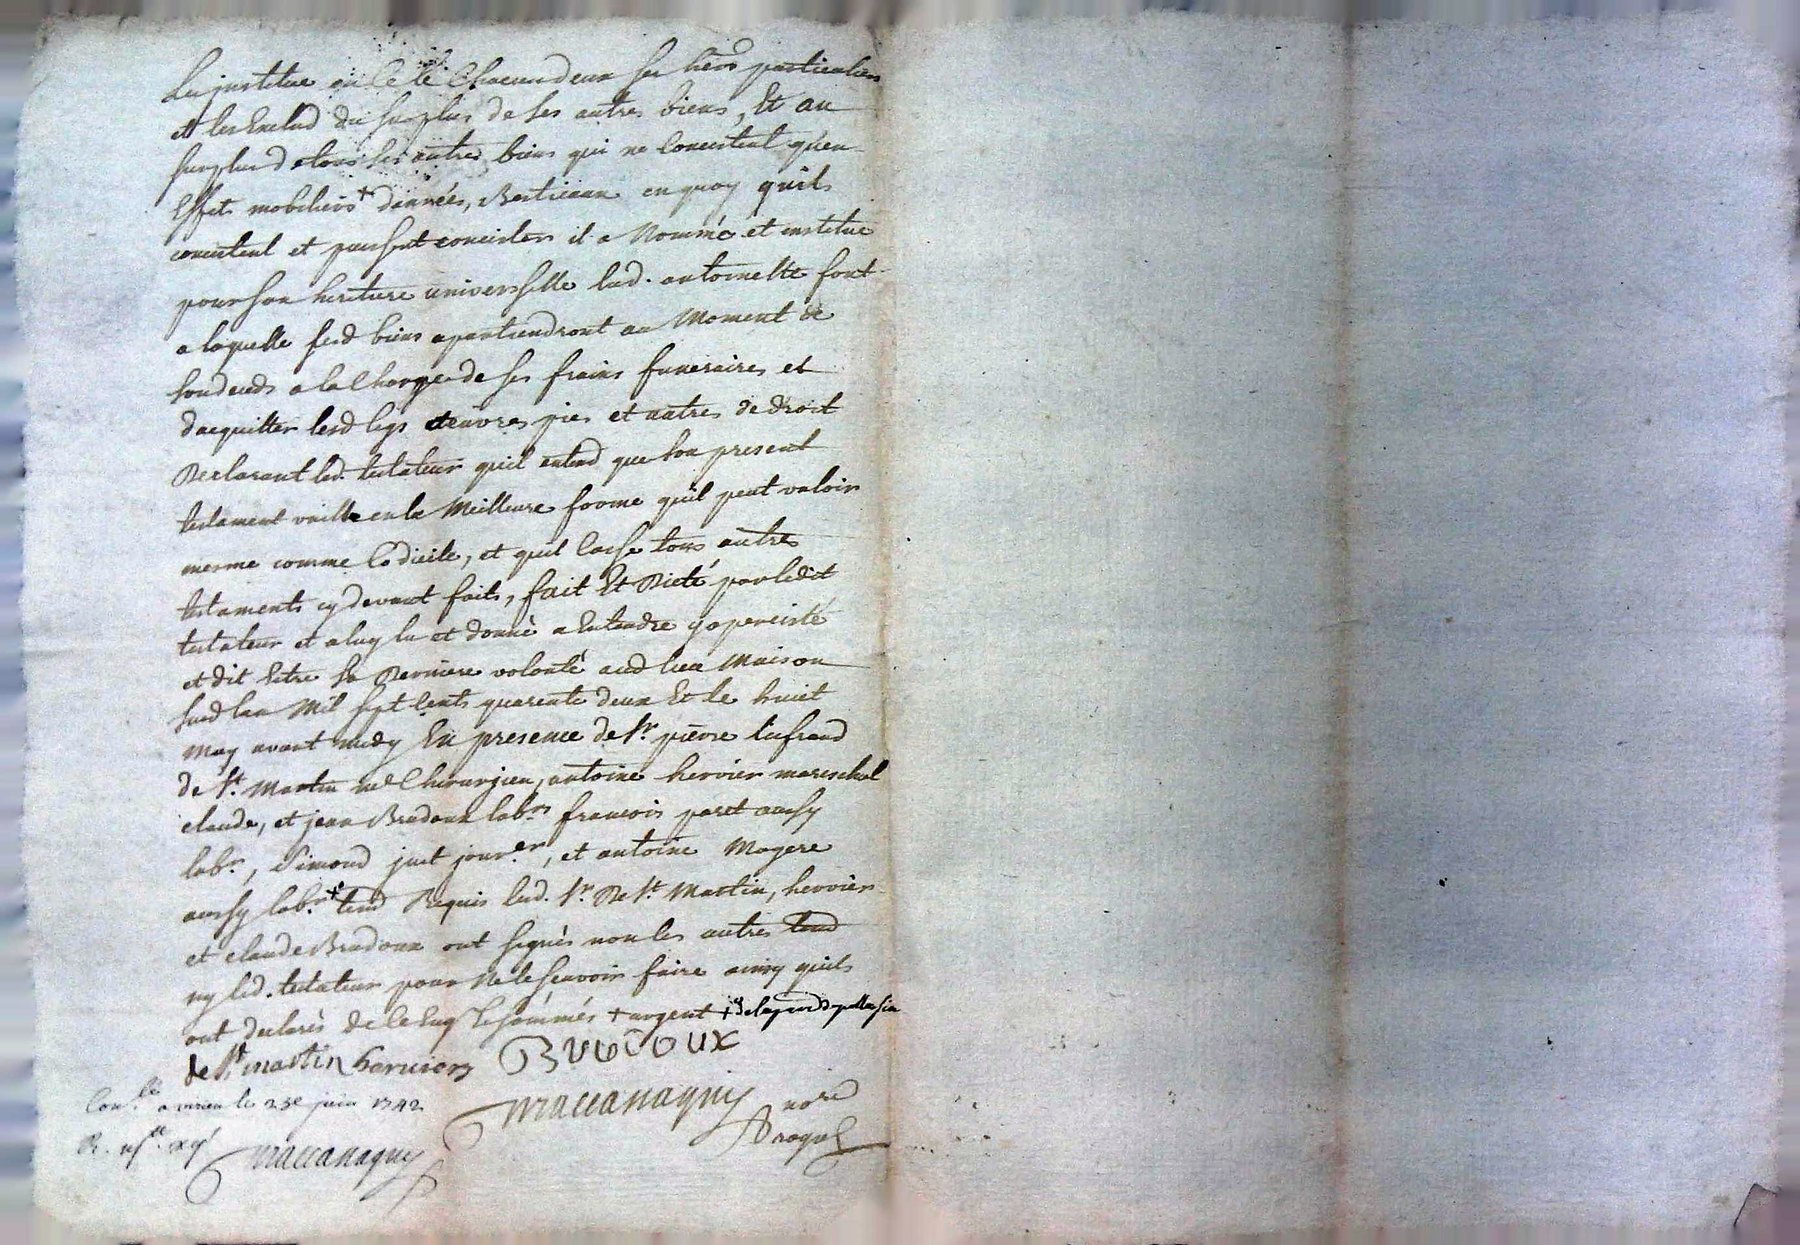 Les institue en ce le Chacun deux ses hers particuliers
et les Exclud du surplus de ses autres biens, Et au
surplus de tous ses autres biens qui ne Concistent qu'en
Effets mobiliers + danrées, Bestieaux en quoy quils
concistent et puissent concister il a Nommé et institué
pour son heritiere universselle lad. antoinette font
a laquelle sesd biens apartiendront au Moment de
son deceds a la Charge de ses frairs funeraires et
dacquitter lesd legs œuvres pies et autres de droit
Declarant led. testateur quil entend que son present
testament vaille en la Meilleure forme quil peut valoir
mesme comme Codicile, et quil Casse tous autres
testaments cy devant faits, fait Et Dicté par ledit
testateur et a luy lu et donné a Entendre y a perciste
et dit Estre sa Derniere volonté aud lieu Maison
susd lan Mil sept Cents quarente deux Et le huict
may avant midy En presence de Sr. pierre
de St. Martin me Chirurgien, antoine hervier mareschal
claude, et jean Brudoux labrs francois paret aussy
labr., Simond just jour.er, et antoine Magere
aussy labr. + tesd Requis led. Sr. De St. Martin, hervier
et claude Brudoux ont signés non les autres tesd
ny led. testateur pour Ne le scavoir faire ainsy quils
ont declarés de ce Enq. Et sommés + argent +
de St martin harvier BRUDOUX
Con.lé a virieu le 23e juin 1742 maccanaguy no.re
R. Maccanaguy